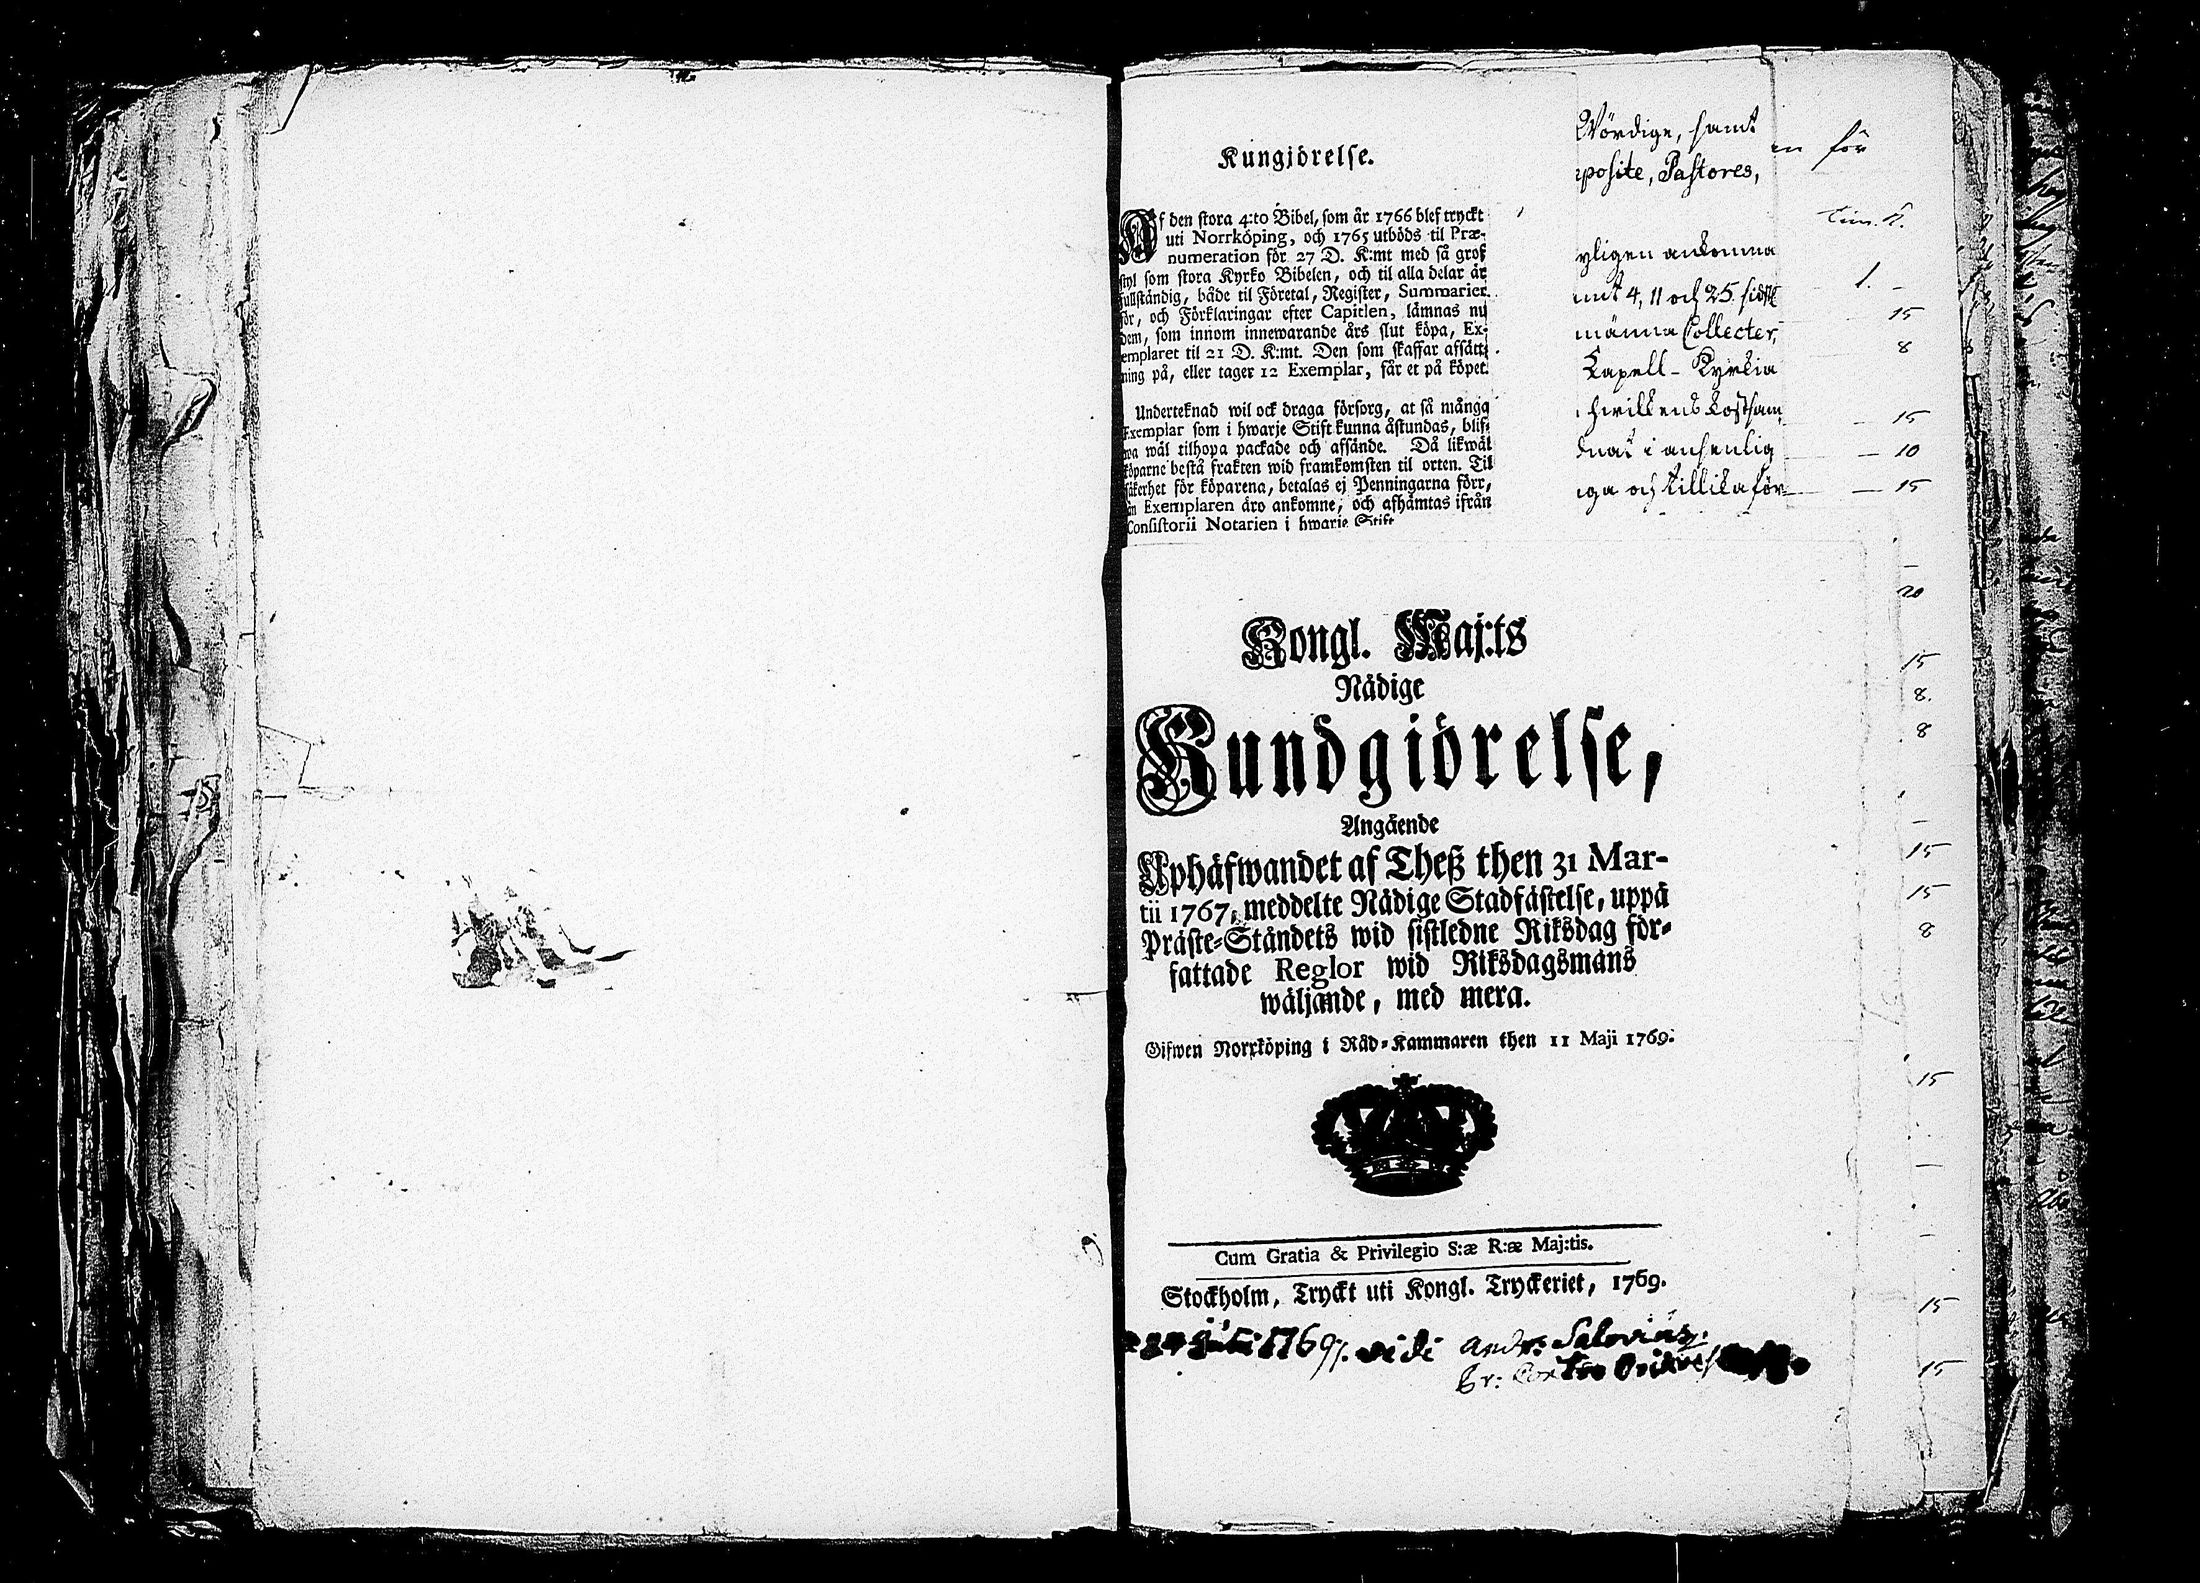 Kungjörelse.
Af den stora 4:to Bibel, som år 1766 blef tryckt
uti Norrköping, och 1765 utböds til Præ-
numeration för 27 D. K:mt med så grof
styl som stora Kyrko Bibelen, och til alla delar är
fullständig, både til Företal, Register, Summarier
för, och Förklaringar efter Capitlen, lämnas nu
dem, som innom innewarande års slut köpa, Ex-
emplaret til 21 D. K:mt. Den som skaffar afsätt-
ning på, eller tager 12 Exemplar, får et på köpet.
Underteknad wil ock draga försorg, at så många
Exemplar som i hwarje Stift kunna åstundas, blif-
wa wäl tilhopa packade och afsände. Då likwäl
köparne bestå frakten wid framkomsten til orten. Til
säkerhet för köparena, betalas ej Penningarna förr,
än Exemplaren äro ankomne, och afhämtas ifrån
Consistorii Notarien i hwarje Stift
Wördige, samt
posite, Pastores,
yligen ankomna
4, 11 och 25 sidstl
männa Collecter,
Capell-Kyrkia
hwilkens kostsam
dnat i ansenlig
iga och tillika för
en för
1. -
15
8
15
10
15
20
15
8.
8
15
15
8
15
15
15
Kongl. Maj:ts
Nådige
Kundgiörelse,
Angående
Uphäfwandet af Theß then 31 Mar-
tii 1767, meddelte Nådige Stadfästelse, uppå
Präste-Ståndets wid sistledne Riksdag för-
fattade Reglor wid Riksdagsmäns
wäljande, med mera.
Gifwen Norrköping i Råd-Kammaren then 11 Maji 1769.
Cum Gratia & Privilegio S:æ R:æ Maj:tis.
Stockholm, Tryckt uti Kongl. Tryckeriet, 1769.
1769. vidi And: Salovius